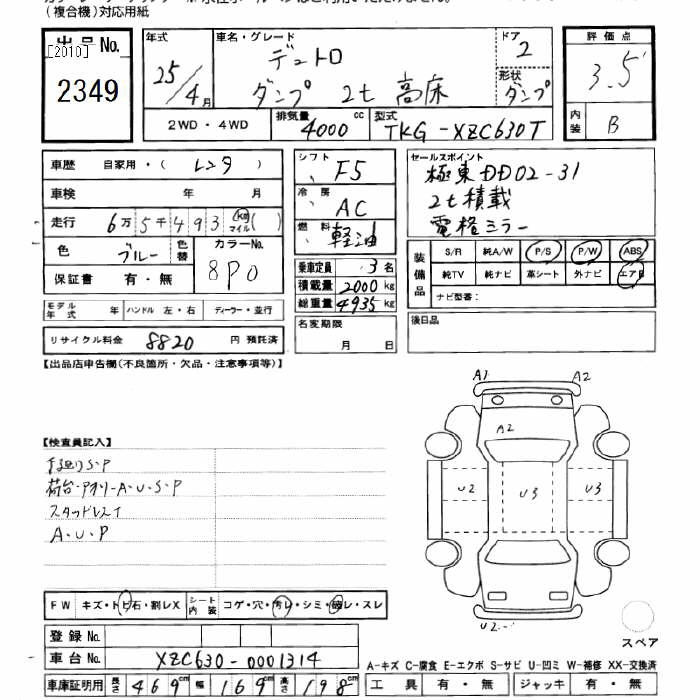 (複合機)対応用紙
出品No.
[2010]
2349
年式
25/4月
車名・グレード
デュトロ
ダンプ 2t 高床
ドア
2
形状
ダンプ
評価点
3.5
内装
B
2WD・4WD
排気量
4000cc
型式
TKG-XZC630T
車歴 自家用・( レンタ )
車検 年 月
走行 6万5千493 km マイル( )
色 ブルー 色替
カラーNo.
8P0
保証書 有・無
シフト F5
冷房 AC
燃料 軽油
乗車定員 3名
積載量 2000kg
総重量 4935kg
セールスポイント
極東DD02-31
2t積載
電格ミラー
装備品
S/R 純A/W P/S P/W ABS
純TV 純ナビ 革シート 外ナビ エアB
ナビ型番:
モデル年式 年 ハンドル 左・右 ディーラー・並行
名変期限
月 日
後日品
リサイクル料金 8820 円 預託済
【出品店申告欄(不良箇所・欠品・注意事項等)】
A1 A2
A2
【検査員記入】
手廻りS・P
荷台・アオリ-A・U・S・P
スタッドレス1
A・U・P
U2 U3 U3
FW キズ・トビ石・割レX
シート内装 コゲ・穴・汚レ・シミ・破レ・スレ
U2
登録No.
スペア
車台No. XZC630-0001314
A-キズ C-腐食 E-エクボ S-サビ U-凹ミ W-補修 XX-交換済
車庫証明用 長さ 469cm 幅 169cm 高さ 198cm
工具 有・無 ジャッキ 有・無